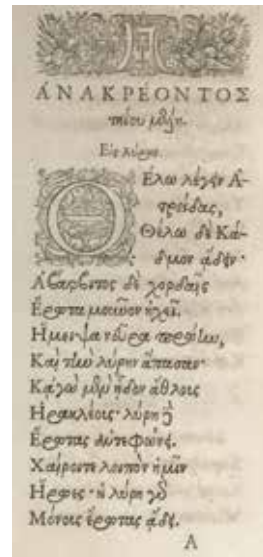 ἈΝΑΚΡΈΟΝΤΟΣ
τηΐου μέλη.
Εἰς λύραν.
Θέλω λέγειν Ἀ-
τρείδας,
Θέλω δὲ Κά-
δμον ᾄδειν·
Ἁ βάρβιτος δὲ χορδαῖς
Ἔρωτα μοῦνον ἠχεῖ.
Ἤμειψα νεῦρα πρώην,
Καὶ τὴν λύρην ἅπασαν·
Κἀγὼ μὲν ᾖδον ἄθλους
Ἡρακλέους· λύρη δὲ
Ἔρωτας ἀντεφώνει.
Χαίροιτε λοιπὸν ἡμῖν
Ἥρωες· ἡ λύρη γὰρ
Μόνους ἔρωτας ᾄδει.
A